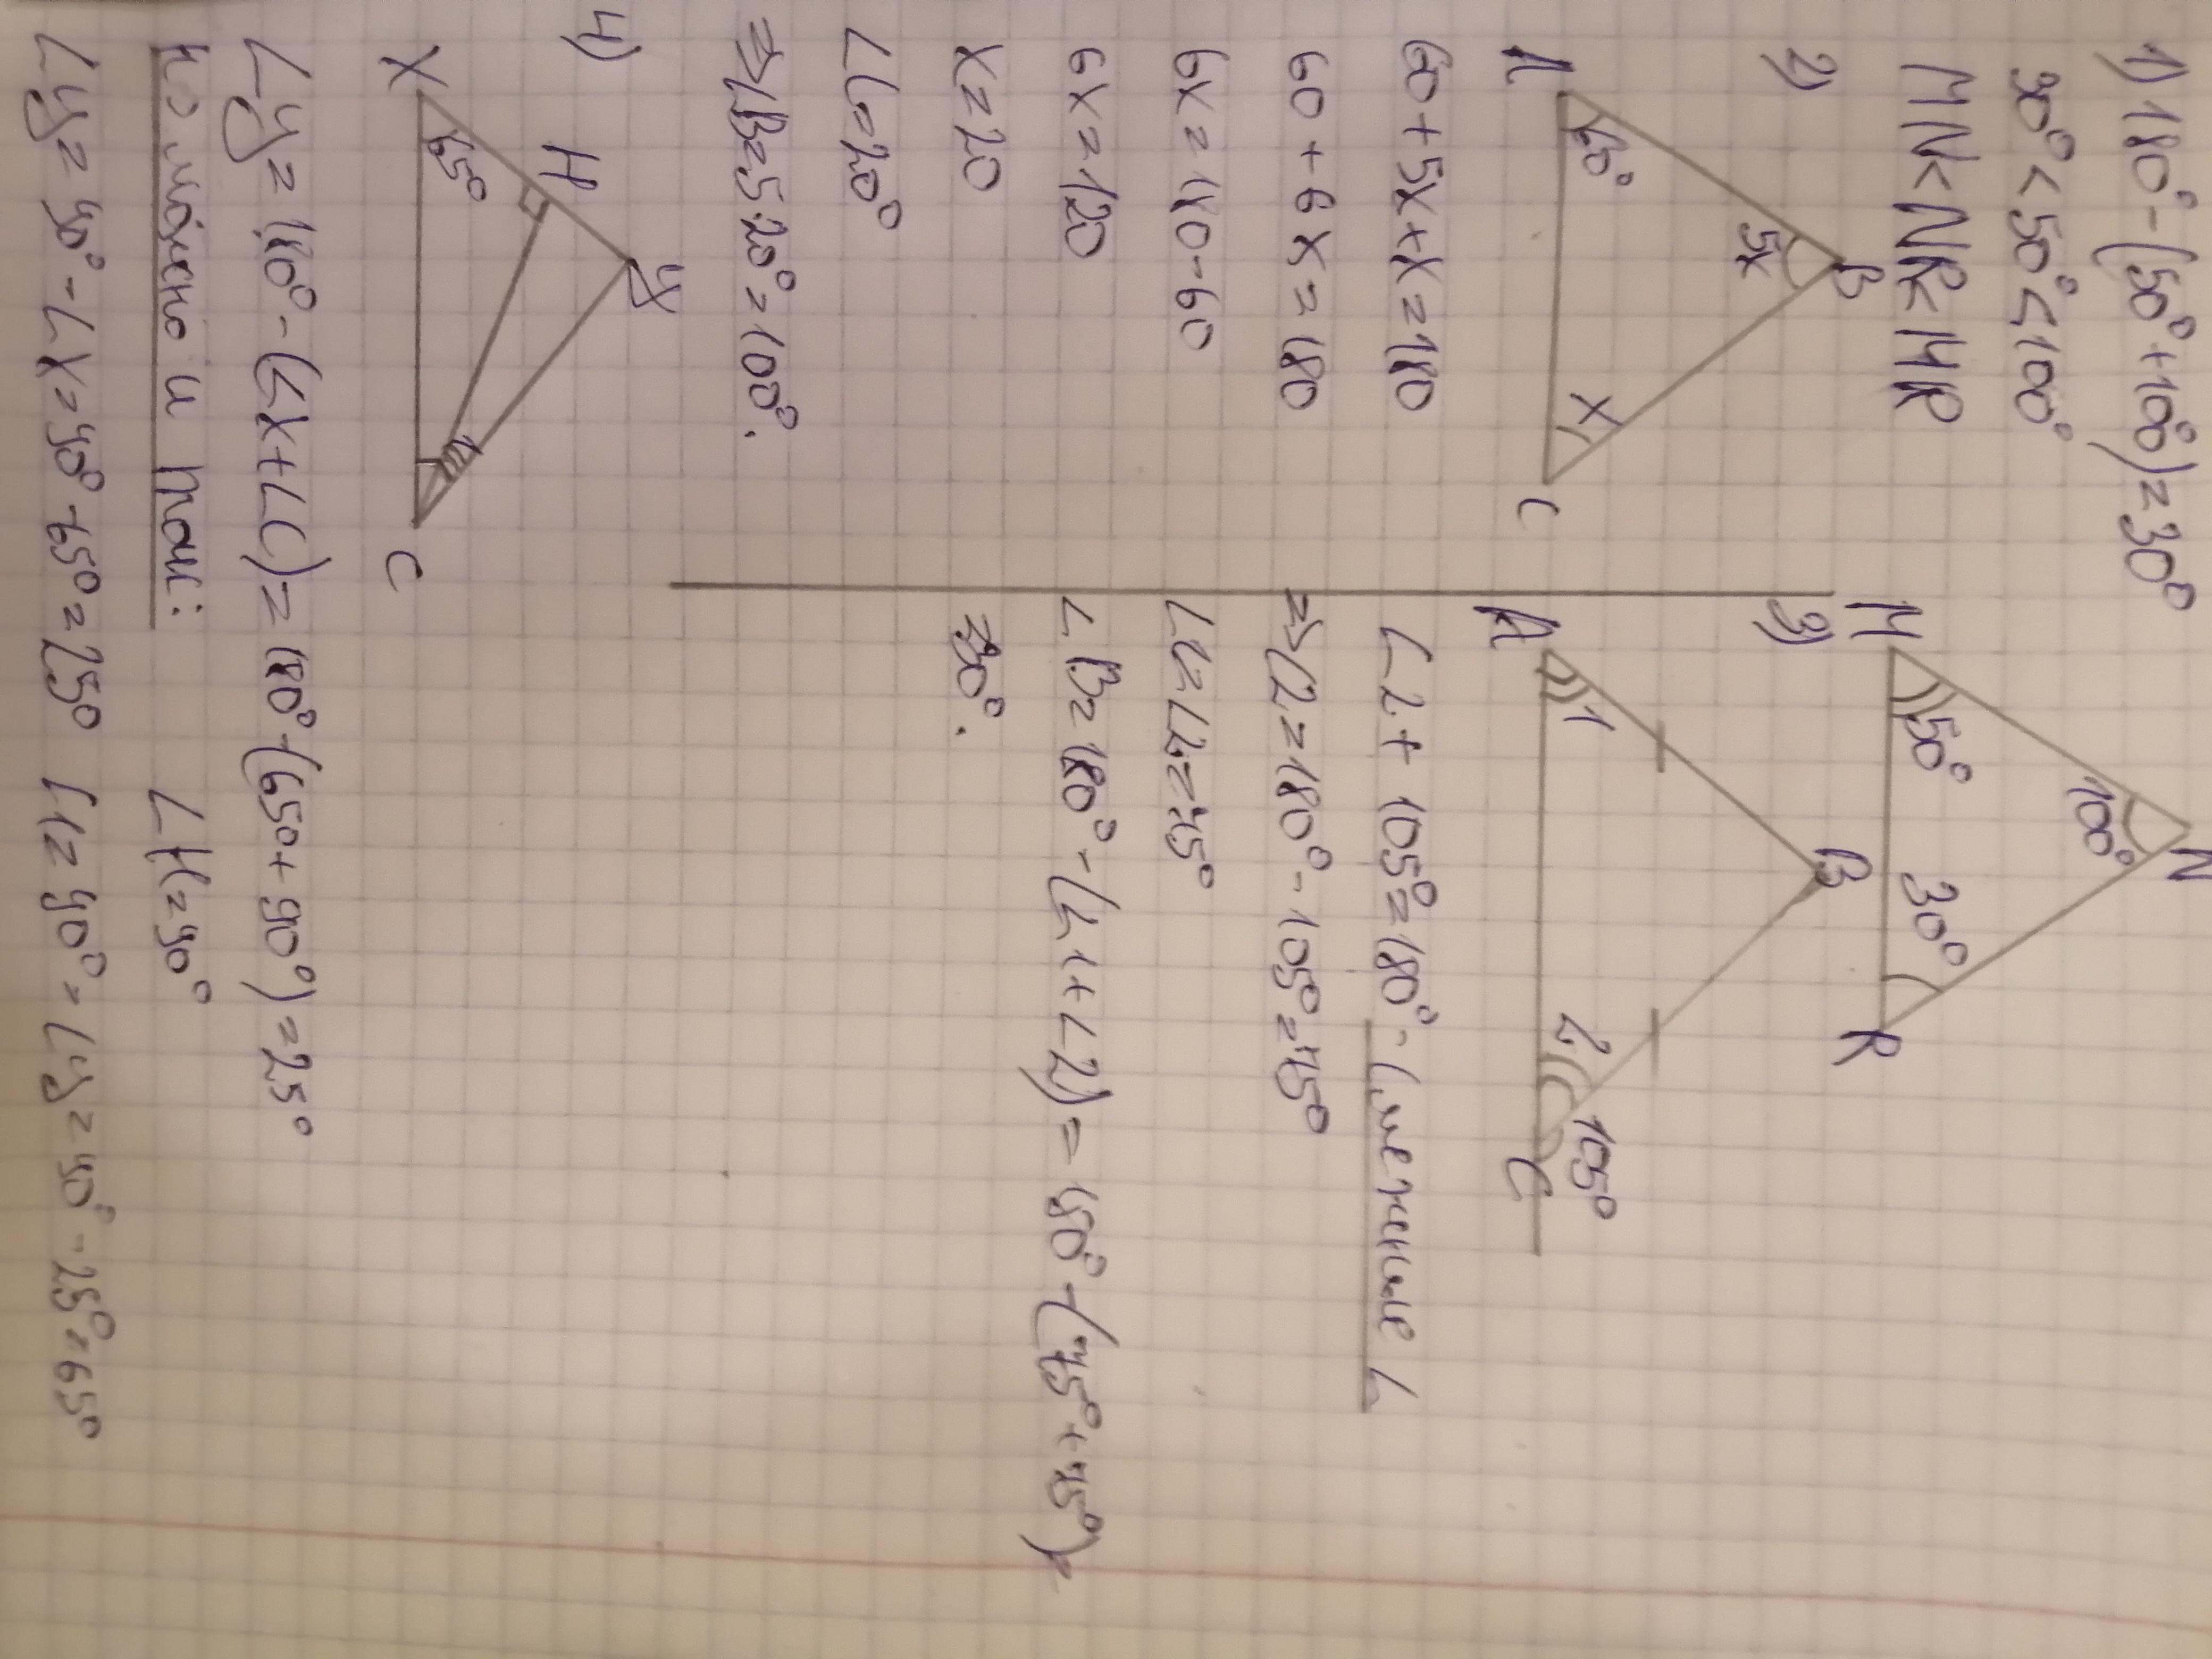 1) 180° - (50° + 100°) = 30°
30° < 50° < 100°
MN < NR < MR
N
100°
50°
30°
M
R
2)
B
5x
60°
x
A
C
60 + 5x + x = 180
60 + 6x = 180
6x = 180 - 60
6x = 120
x = 20
∠C = 20°
=> ∠B = 5·20° = 100°.
3)
B
1
2
105°
A
C
∠2 + 105° = 180° - смежные ∠
=> ∠2 = 180° - 105° = 75°
∠1 = ∠2 = 75°
∠B = 180° - (∠1 + ∠2) = 180° - (75° + 75°) =
= 30°.
4)
У
H
65°
X
C
∠У = 180° - (∠X + ∠C) = 180° - (65° + 90°) = 25°
но можно и так:
∠H = 90°
∠У = 90° - ∠X = 90° - 65° = 25°
90° - ∠У = 90° - 25° = 65°